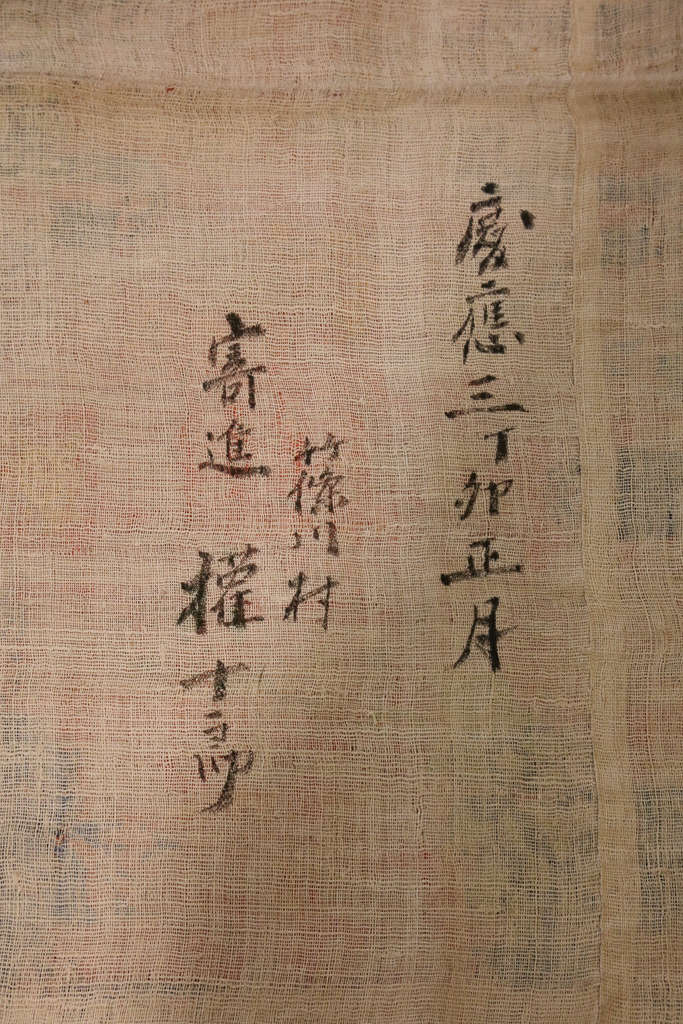 慶應三丁卯正月
篠川村
寄進 權十郎